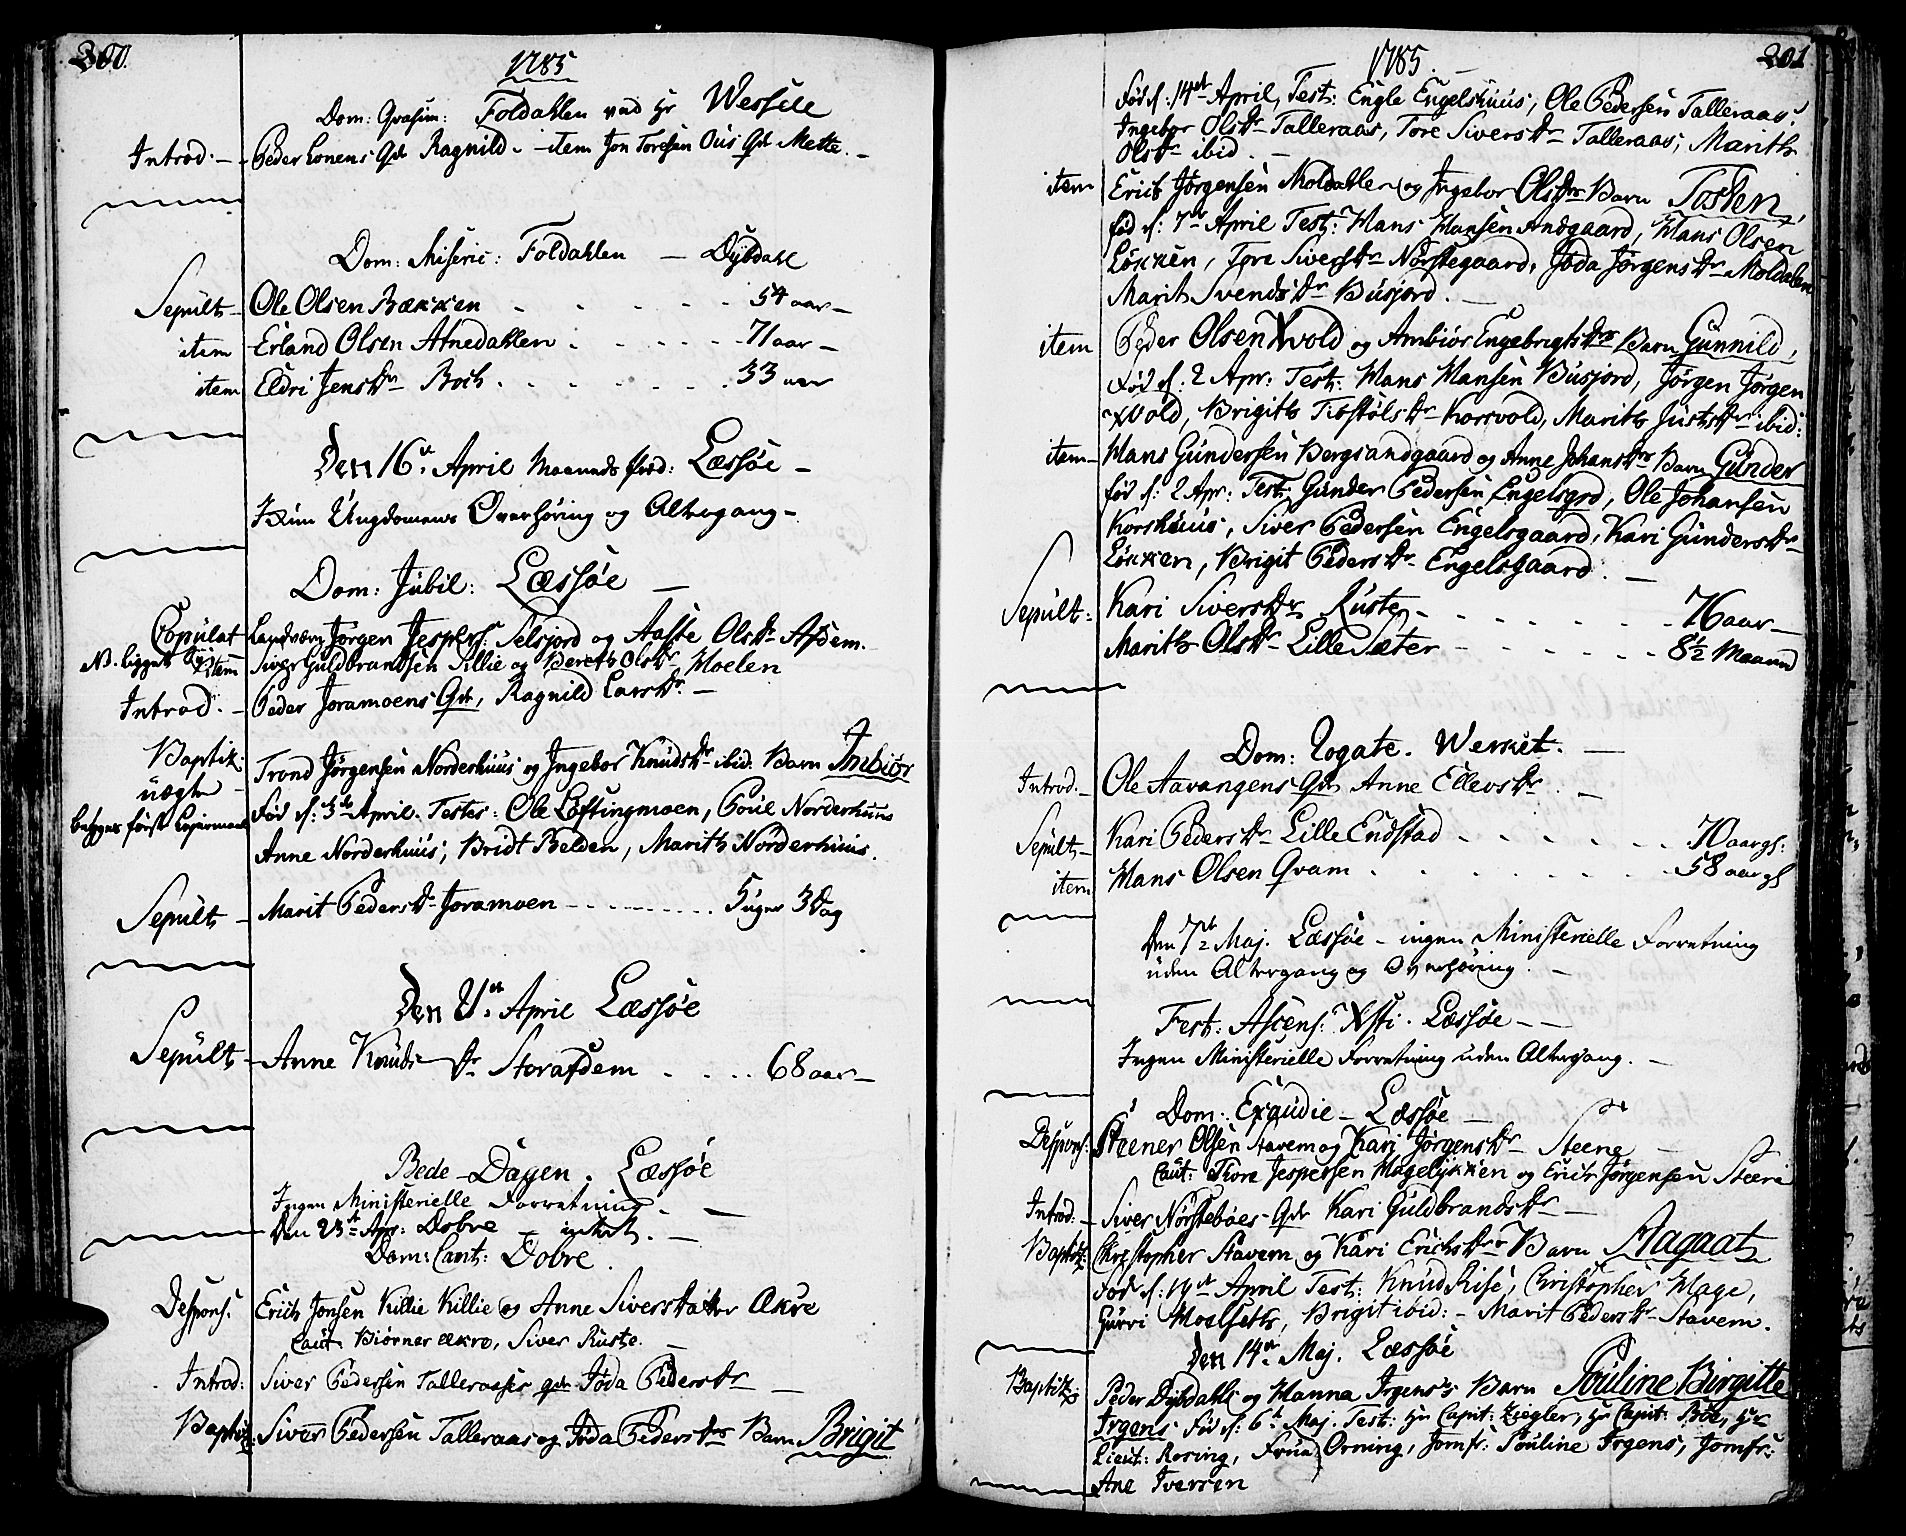 200.
1785
Dom: Qvasim: Foldahlen ved Hr Wessele
Introd: Peder Lonens Qde Ragnild. item Jon Toresen Ous Qde Mette.
Dom: Miseric: Foldahlen — Dÿbdahl
Sepult Ole Olsen Bækken 54 aar
item Erland Olsen Atnedahlen 71 aar
item Eldri Jensdr Boch 33 aar
Den 16de April Læssøe
Ungdomens Overhøring og Altergang
Dom: Jubil: Læssøe
Copulat Landværn Jørgen Jespers: Selsjord og Aaste Olsdr Afdem.
NB. ligger item Siver Guldbrandsen Killie og Bereth Olsdr Moelen
Introd. Peder Joramoens Qde, Ragnild Larsdr
Baptiz: Trond Jørgensen Norderhuus og Ingebor Knudsdr ibid: Barn Imbiør
uægte Fød d: 3de April. Testes: Ole Løftingmoen, Poul Norderhuus
Anne Norderhuus, Bridt Belden, Marith Norderhuus.
Sepult Marit Pedersdr Joramoen 5 uger 3 Dag
Den 21de April Læssøe
Sepult Anne Knudsdr Storafdem 68 aar
Bede-Dagen. Læssøe
Ingen Ministerielle Forretning
Den 23de Apr: Dobre intet.
Dom: Cant: Dobre.
Despons: Erich Jonsen Killie Killie og Anne Siversdatter Økre
Caut. Biørner Økre, Siver Ruste.
Introd: Siver Pedersen Talleraases qde Jøda Pedersdr
Baptiz: Siver Pedersen Talleraas og Jøda Pedersdrs Barn Brigit
201
1785.
Fød d: 14de April, Test: Engle Engelshuus, Ole Pedersen Talleraas,
Ingebor Olsdr Talleraas, Tore Siversdr Talleraas, Marith
Olsdr ibid.
item Erich Jørgensen Moldahlen og Ingebor Olsdrs Barn Tosten,
fød d: 7de April Test: Hans Hansen Andgaard, Hans Olsen
Løkken, Tore Siversdr Nørstegaard, Jøda Jørgensdr Moldalen
Marith Svendsdr Busjord.
item Peder Olsen Xvold og Ambiør Engebrigtsdrs Barn Gunnild,
Fød d: 2 Apr: Test: Hans Hansen Busjord, Jørgen Jørgen
Xvold, Brigith Tostølsdr Korsvold, Marith Justsdr ibid:
item Hans Gundersen Bergsandgaard og Anne Johansdrs Barn Gunder
fød d: 2 Apr: Test: Gunder Pedersen Engelsgrd, Ole Johansen
Korshuus, Siver Pedersen Engelsgaard, Kari Gundersdr
Løkken, Brigit Pedersdr Engelsgaard.
Sepult: Kari Siversdr Ruste 76 aar
Marith Olsdr Lille Sæter 8½ Maaned
Dom: Rogate. Werket.
Introd. Ole Aavangens Qde Anne Ellevsdr
Sepult Kari Pedersdr Lille Endstad 70 aar gl:
item Hans Olsen Qvam 58 aar gl
Den 7de Maj. Læssøe - ingen Ministerielle Forretning
uden Altergang og Overhøring.
Fest: Ascens: Xsti. Læssøe
Ingen Ministerielle Forretning uden Altergang.
Dom: Exaudie - Læssøe
Despons: Steener Olsen Stavem og Kari Jørgensdr Steene
Caut: Thore Jespersen Hageløkken og Erich Jørgensen Steene
Introd: Siver Nørstebøes Qde Kari Guldbrandsdr
Baptiz: Christopher Stavem og Kari Erichsdrs Barn Aagaat
Fød d: 19de April Test: Knud Rise, Christopher Hage,
Gurri Moelsett, Brigit ibid: - Marit Pedersdr Stavem.
Den 14de Maj. Læssøe
Baptiz: Peder Dÿbdahls og Hanna Irgens's Barn Pouline Birgitte
Irgens fød d: 6te Maj. Test: Hr Capit: Ziegler, Hr Capit: Bøe, Hr
Lieut: Rosing, Frue Orning, Jomfr: Pouline Irgens, Jomfr:
Ane Iversen